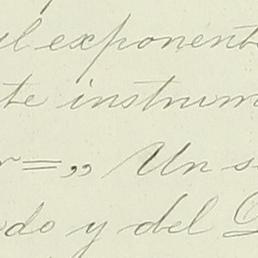 ul exponent
te instrum
r=„ Un s
do y del D